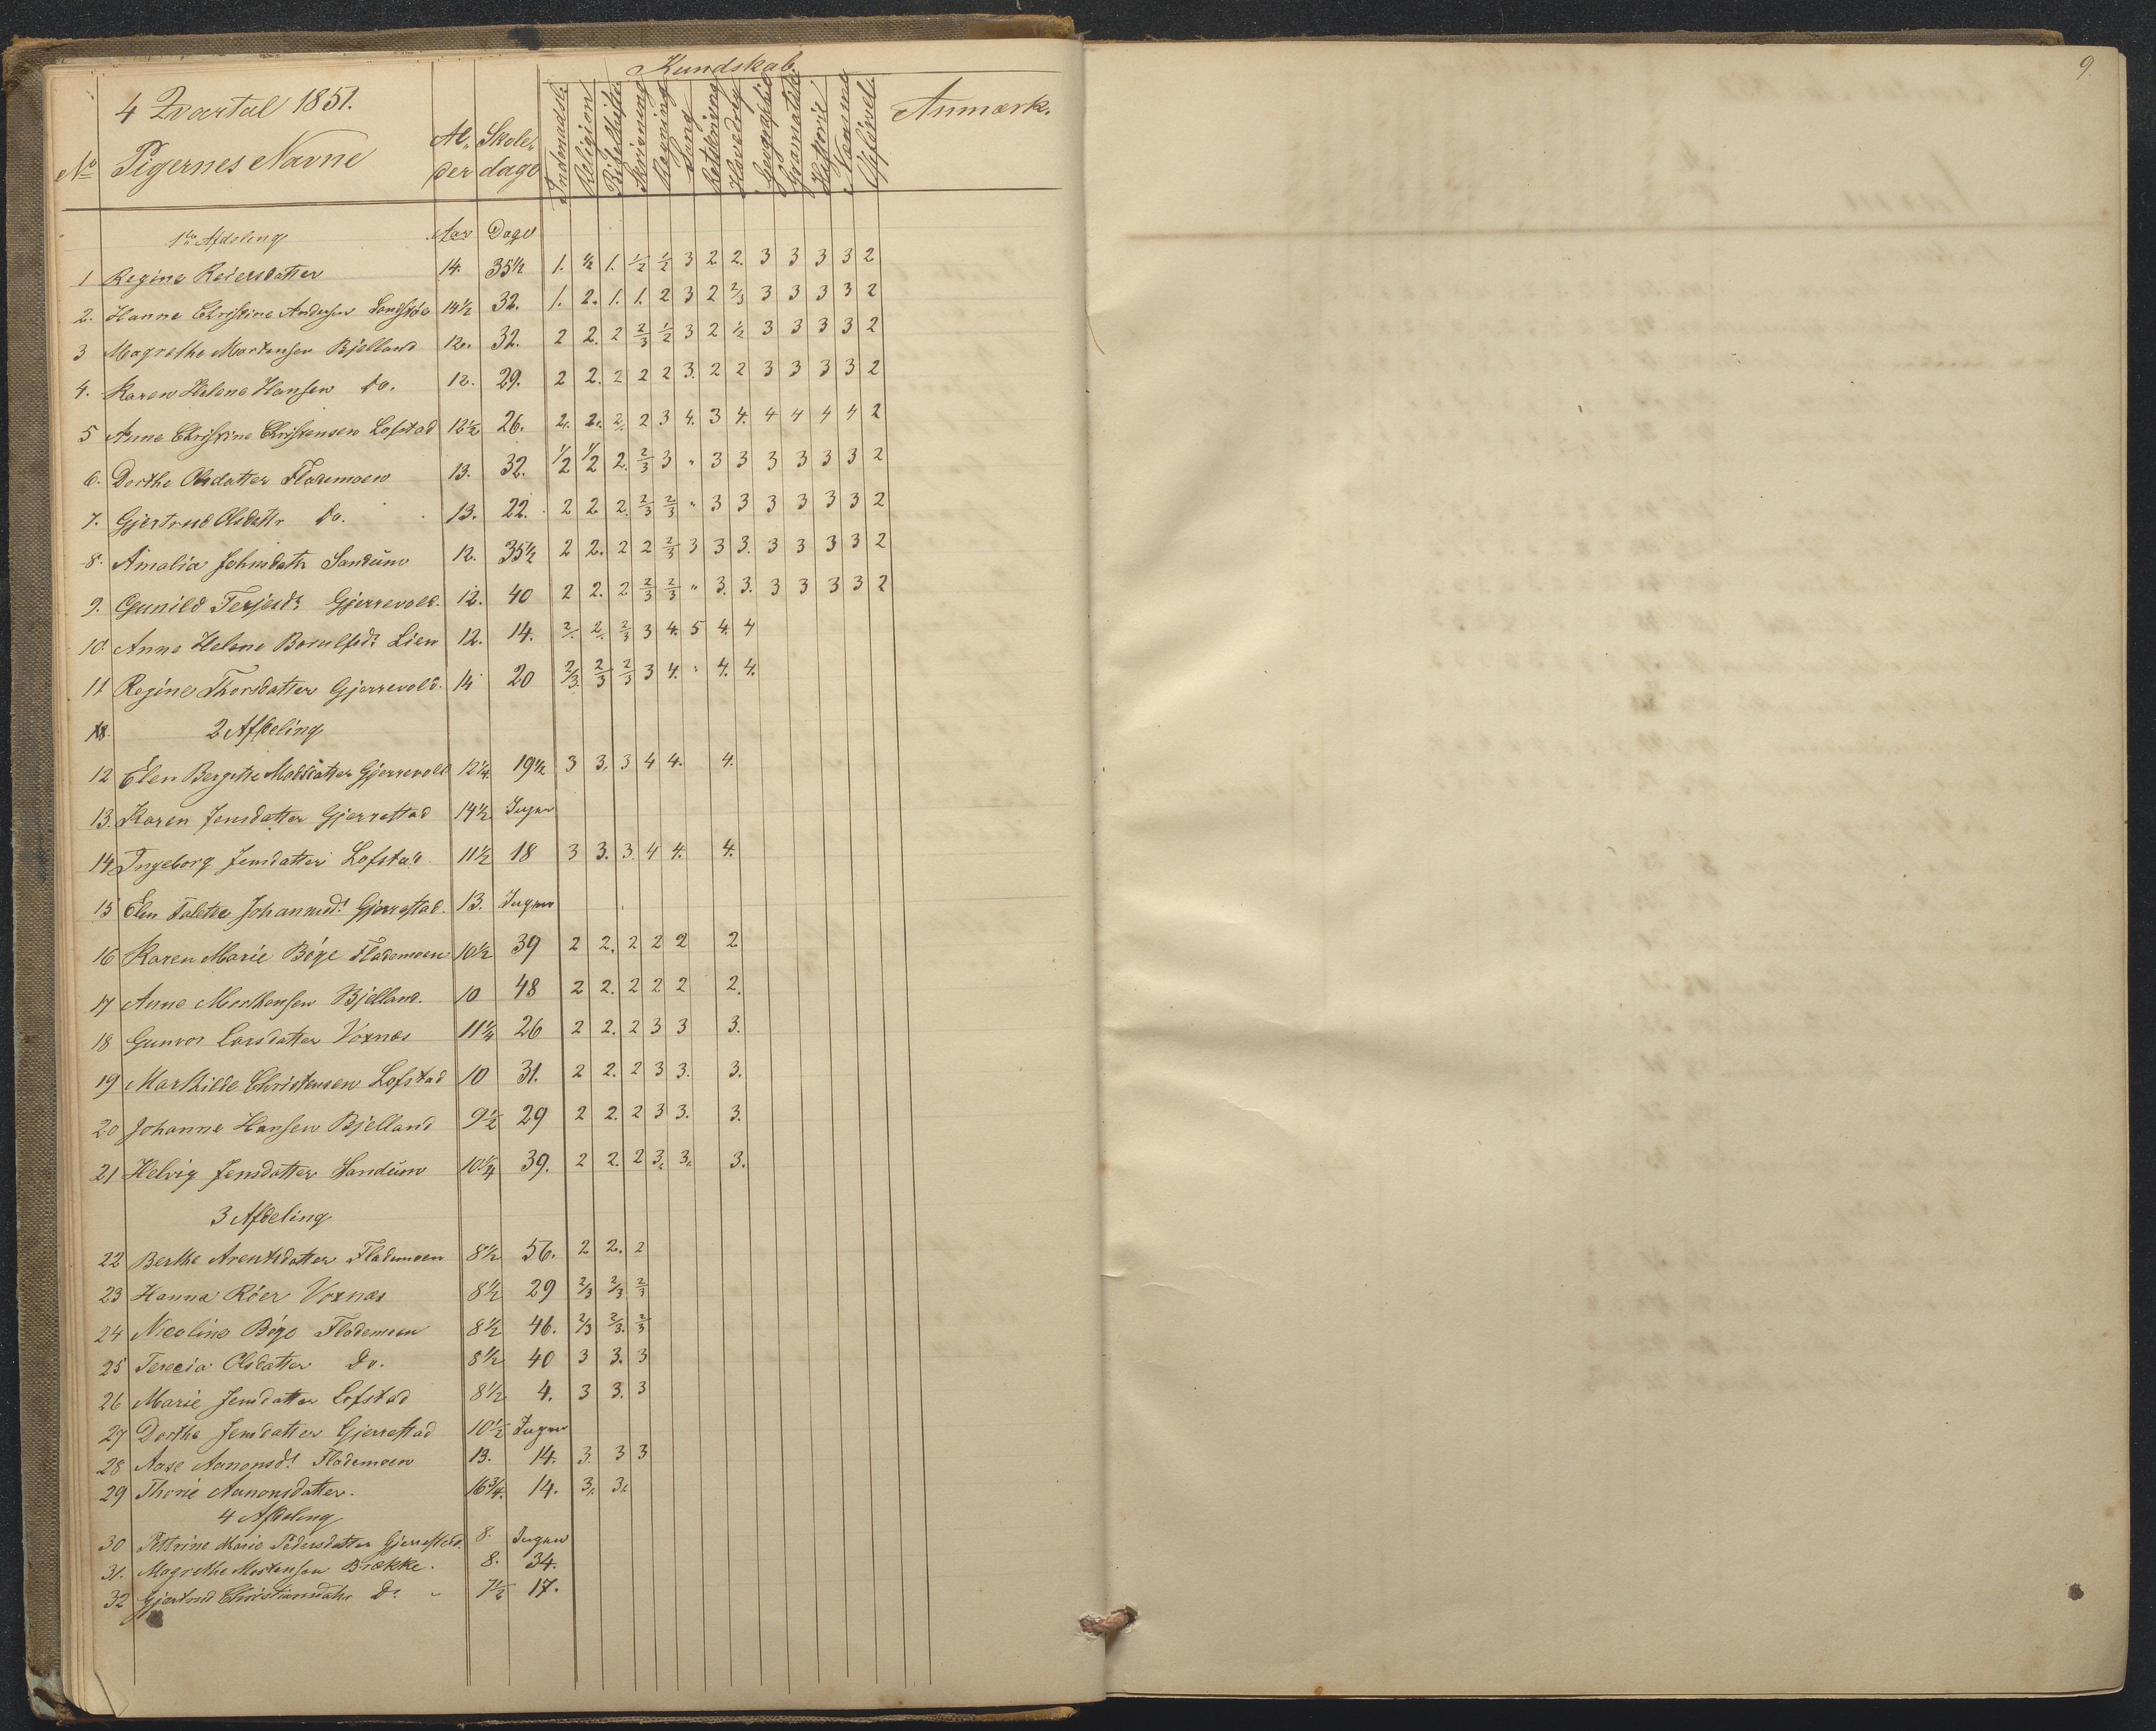 9.
Kundskab.
4 Qvartal 1851.
No Pigernes Navne Al- der Skole- dage Religion Skrivning Regning Sang Historie Anmærk.
1ste Afdeling Aar Dage
1 Regine Reiersdatter 14. 35½ 1. ½ 1. ½ ½ 3 2 2. 3 3 3 3 2
2. Hanne Christine Andersen 14½ 32. 1. 2. 1. 1. 2 3 2 2/3 3 3 3 3 2
3 Magrethe Martensen Bjelland 12. 32. 2 2. 2 2/3 ½ 3 2 ½ 3 3 3 3 2
4. Karen Helene Hansen Do. 12. 29. 2 2. 2 2 2 3. 2 2 3 3 3 3 2
5 Anne Christine Christensen Lofstad 12½ 26. 2. 2. 2. 2 3 4. 3 4. 4 4 4 4 2
6. Dorthe Olsdatter Flademoen 13. 32. ½ ½ 2. 2/3 3 " 3 3 3 3 3 3 2
7. Gjertrud Olsdatr Do. 13. 22. 2 2 2. 2/3 2/3 " 3 3 3 3 3 3 2
8. Amalia Johnsdatr Sandum 12. 35½ 2 2. 2 2 2/3 3 3 3. 3 3 3 3 2
9. Gunild Terjesdr Gjerrevold. 12. 40 2 2. 2 2/3 2/3 " 3. 3. 3 3 3 3 2
10. Anne Helene Lien 12. 14. 2. 2. 2/3 3 4. 5 4. 4
11 Regine Thorsdatter Gjerrevold. 14 20 2/3. 2/3 2/3 3 4. " 4. 4.
2 Afdeling
12 Elen Bergitte Madsdatter Gjerrevold 12¼ 19½ 3 3. 3 4 4. 4.
13. Karen Jensdatter Gjerrestad 14½ Ingen
14 Ingeborg Jensdatter Lofstad 11½ 18 3 3. 3. 4 4. 4.
15 Elen Johannesdr Gjerrestad. 13. Ingen
16 Karen Marie Böge Flademoen 10½ 39 2 2. 2 2 2 2
17 Anne Morthensen Bjelland. 10 48 2 2. 2 2 2 2.
18 Gunvor Larsdatter Voxnæs 11¼ 26 2 2. 2 3 3 3.
19 Mathilde Christensen Lofstad 10 31. 2 2. 2 3 3. 3.
20 Johanne Hansen Bjelland 9½ 29 2 2. 2 3 3. 3.
21 Helvig Jensdatter Sandum 10¼ 39. 2 2. 2 3. 3. 3.
3 Afdeling
22 Berthe Arentsdatter Flademoen 8½ 56. 2 2. 2
23 Hanna Röer Voxnæs 8½ 29 2/3 2/3 2/3
24 Nicoline Böge Flademoen 8½ 46. 2/3 2/3. 2/3
25 Terecia Olsdatter Do. 8½ 40 3 3. 3
26 Marie Jensdatter Lofstad 8½ 4. 3 3. 3
27 Dorthe Jensdatter Gjerrestad 10½ Ingen
28 Aase Aanonsdr Flademoen 13. 14. 3. 3 3
29 Thorie Aanonsdatter. 16¾ 14. 3. 3.
4 Afdeling
30 Pettrine Marie Pedersdatter Gjerrestad. 8. Ingen
31. Magrethe Mortensen Brække. 8. 34.
32 Gjertrud Christiansdatr Do. 7½ 17.